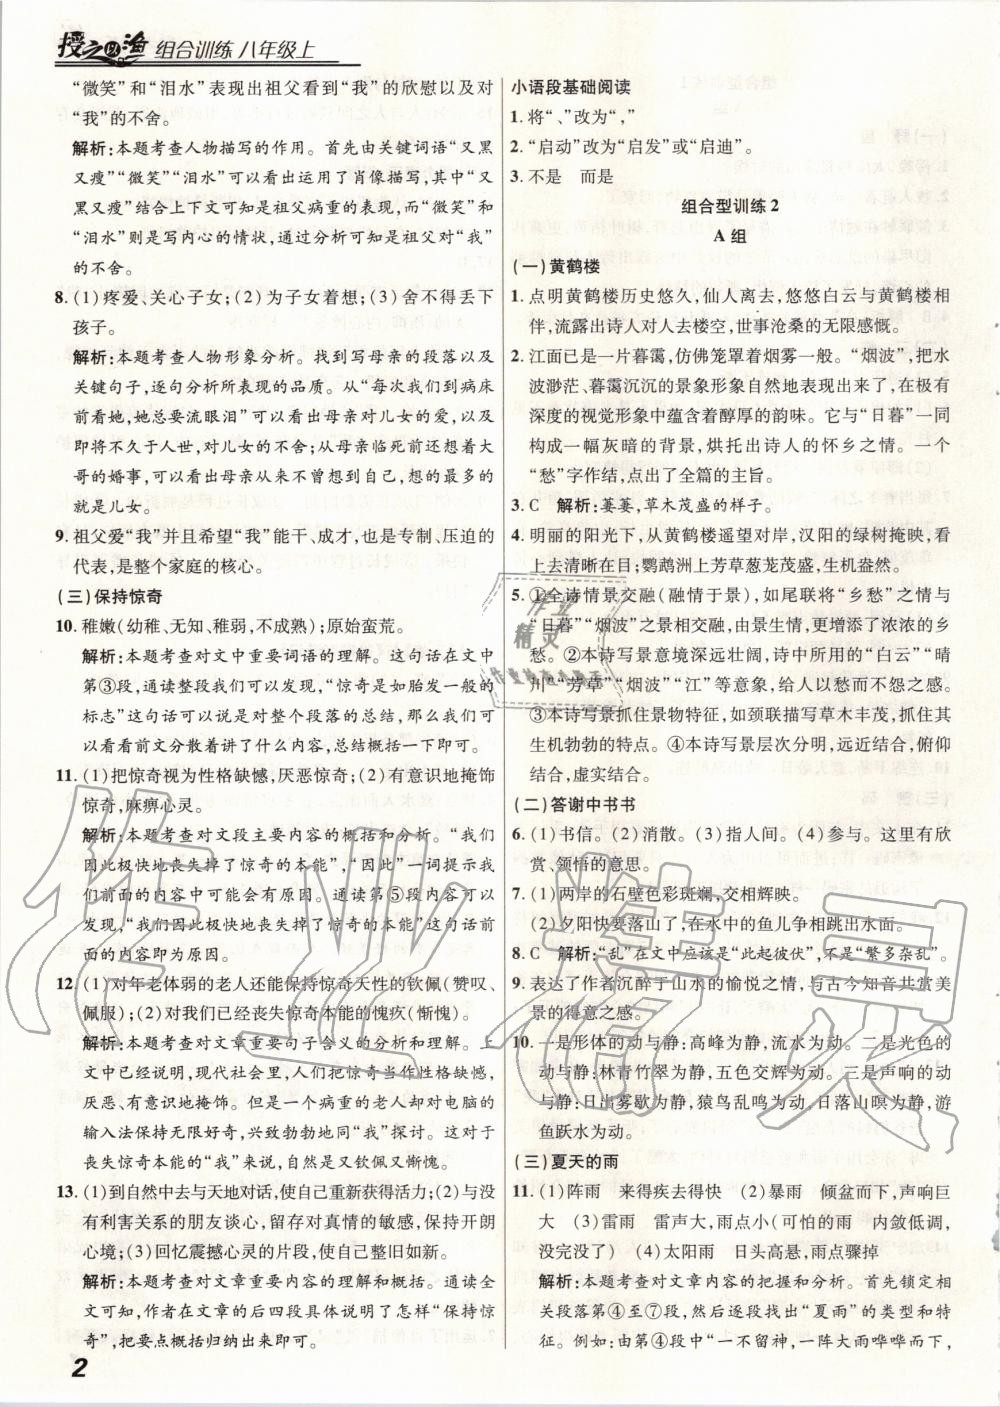 授之以渔 组合训练 八年级上
“微笑”和“泪水”表现出祖父看到“我”的欣慰以及对
“我”的不舍。
解析:本题考查人物描写的作用。首先由关键词语“又黑
又瘦”“微笑”“泪水”可以看出运用了肖像描写,其中“又
黑又瘦”结合上下文可知是祖父病重的表现,而“微笑”和
“泪水”则是写内心的情状,通过分析可知是祖父对“我”
的不舍。
8. (1)疼爱、关心子女;(2)为子女着想;(3)舍不得丢下
孩子。
解析:本题考查人物形象分析。找到写母亲的段落以及
关键句子,逐句分析所表现的品质。从“每次我们到病床
前看她,她总要流眼泪”可以看出母亲对儿女的爱,以及
即将不久于人世,对儿女的不舍;从母亲临死前还想着大
哥的婚事,可以看出母亲从来不曾想到自己,想的最多的
就是儿女。
9. 祖父爱“我”并且希望“我”能干、成才,也是专制、压迫的
代表,是整个家庭的核心。
(三)保持惊奇
10. 稚嫩(幼稚、无知、稚弱,不成熟);原始蛮荒。
解析:本题考查对文中重要词语的理解。这句话在文中
第③段,通读整段我们可以发现,“惊奇是如胎发一般的
标志”这句话可以说是对整个段落的总结,那么我们可
以看看前文分散着讲了什么内容,总结概括一下即可。
11. (1)把惊奇视为性格缺憾,厌恶惊奇;(2)有意识地掩饰
惊奇,麻痹心灵。
解析:本题考查对文段主要内容的概括和分析。“我们
因此极快地丧失掉了惊奇的本能”,“因此”一词提示我
们前面的内容中可能会有原因。通读第⑤段内容可以
发现,“我们因此极快地丧失掉了惊奇的本能”这句话前
面的内容中即为原因。
12. (1)对年老体弱的老人还能保持惊奇天性的钦佩(赞叹、
佩服);(2)对我们已经丧失惊奇本能的愧疚(惭愧)。
解析:本题考查对文章重要句子含义的分析和理解。上
文中已经说明,现代社会里,人们将惊奇当作性格缺憾,
厌恶、有意识地掩饰。但是一个病重的老人却对电脑的
输入法保持无限好奇,兴致勃勃地同“我”探讨。这对于
丧失惊奇本能的“我”来说,自然是又钦佩又惭愧。
13. (1)到自然中去与天地对话,使自己重新获得活力;(2)与没
有利害关系的朋友谈心,留存对真情的敏感,保持开朗
心境;(3)回忆震撼心灵的片段,使自己整旧如新。
解析:本题考查对文章重要内容的理解和概括。通读全
文可知,作者在文章的后四段具体说明了怎样“保持惊
奇”,把要点概括归纳出来即可。
2
小语段基础阅读
1. 将“、”改为“,”
2. “启动”改为“启发”或“启迪”。
3. 不是 而是
组合型训练2
A 组
(一)黄鹤楼
1. 点明黄鹤楼历史悠久,仙人离去,悠悠白云与黄鹤楼相
伴,流露出诗人对人去楼空,世事沧桑的无限感慨。
2. 江面已是一片暮霭,仿佛笼罩着烟雾一般。“烟波”,把水
波渺茫、暮霭沉沉的景象形象自然地表现出来了,在极有
深度的视觉形象中蕴含着醇厚的韵味。它与“日暮”一同
构成一幅灰暗的背景,烘托出诗人的怀乡之情。一个
“愁”字作结,点出了全篇的主旨。
3. C 解析:萋萋,草木茂盛的样子。
4. 明丽的阳光下,从黄鹤楼遥望对岸,汉阳的绿树掩映,看
上去清晰在目;鹦鹉洲上芳草葱茏茂盛,生机盎然。
5. ①全诗情景交融(融情于景),如尾联将“乡愁”之情与
“日暮”“烟波”之景相交融,由景生情,更增添了浓浓的乡
愁。②本诗写景意境深远壮阔,诗中所用的“白云”“晴
川”“芳草”“烟波”“江”等意象,给人以愁而不怨之感。
③本诗写景抓住景物特征,如颈联描写草木丰茂,抓住其
生机勃勃的特点。④本诗写景层次分明,远近结合,俯仰
结合,虚实结合。
(二)答谢中书书
6. (1)书信。(2)消散。(3)指人间。(4)参与。这里有欣
赏、领悟的意思。
7. (1)两岸的石壁色彩斑斓,交相辉映。
(2)夕阳快要落山了,在水中的鱼儿争相跳出水面。
8. C 解析:“乱”在文中应该是“此起彼伏”,不是“繁多杂乱”。
9. 表达了作者沉醉于山水的愉悦之情,与古今知音共赏美
景的得意之感。
10. 一是形体的动与静:高峰为静,流水为动。二是光色的
动与静:林青竹翠为静,五色交辉为动。三是声响的动
与静:日出雾歇为静,猿鸟乱鸣为动,日落山暝为静,游
鱼跃水为动。
(三)夏天的雨
11. (1)阵雨 来得疾去得快 (2)暴雨 倾盆而下,声响巨
大 (3)雷雨 雷声大,雨点小(可怕的雨 内敛低调,
没完没了) (4)太阳雨 日头高悬,雨点骤掉
解析:本题考查对文章内容的把握和分析。首先锁定相
关段落第④至⑦段,然后逐段找出“夏雨”的类型和特
征。例如:由第④段中“一不留神,一阵大雨哗哗而下,
作业精灵
作业精灵